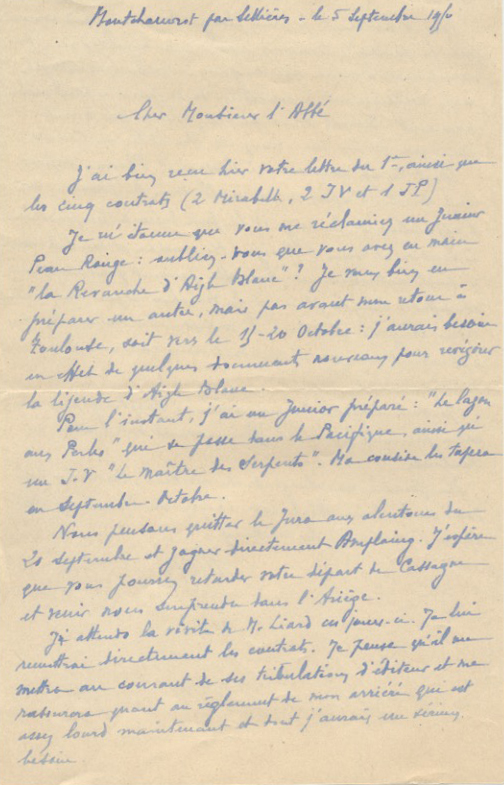 Montcharvot par Sellières - le 5 Septembre 195
Cher Monsieur l'Abbé
J'ai bien reçu hier votre lettre du 1er, ainsi que
les cinq contrats (2 Mirabelle, 2 JV et 1 JP)
Je m'étonne que vous me réclamiez un Junior
Peau Rouge : oubliez-vous que vous avez en main
"la Revanche d'Aigle Blanc" ? Je veux bien en
préparer un autre, mais pas avant mon retour à
Toulouse, soit vers le 15-20 Octobre : j'aurais besoin
en effet de quelques documents nouveaux pour
la légende d'Aigle Blanc.
Pour l'instant, j'ai un Junior préparé : "Le lagon
aux Perles" qui se passe dans le Pacifique, ainsi qu'
un J.V "Le Maître des Serpents". Ma cousine les tapera
en Septembre-Octobre.
Nous pensons quitter le Jura aux alentours du
20 septembre et gagner directement Amplaing. J'espère
que vous pourrez retarder votre départ de Cassagne
et venir nous surprendre dans l'Ariège.
J'attends la visite de M. Liard ces jours-ci. Je lui
remettrai directement les contrats. Je pense qu'il me
mettra au courant de ses tribulations d'éditeur et me
rassurera quant au règlement de mon arriéré qui est
assez lourd maintenant et dont j'aurais un sérieux
besoin.